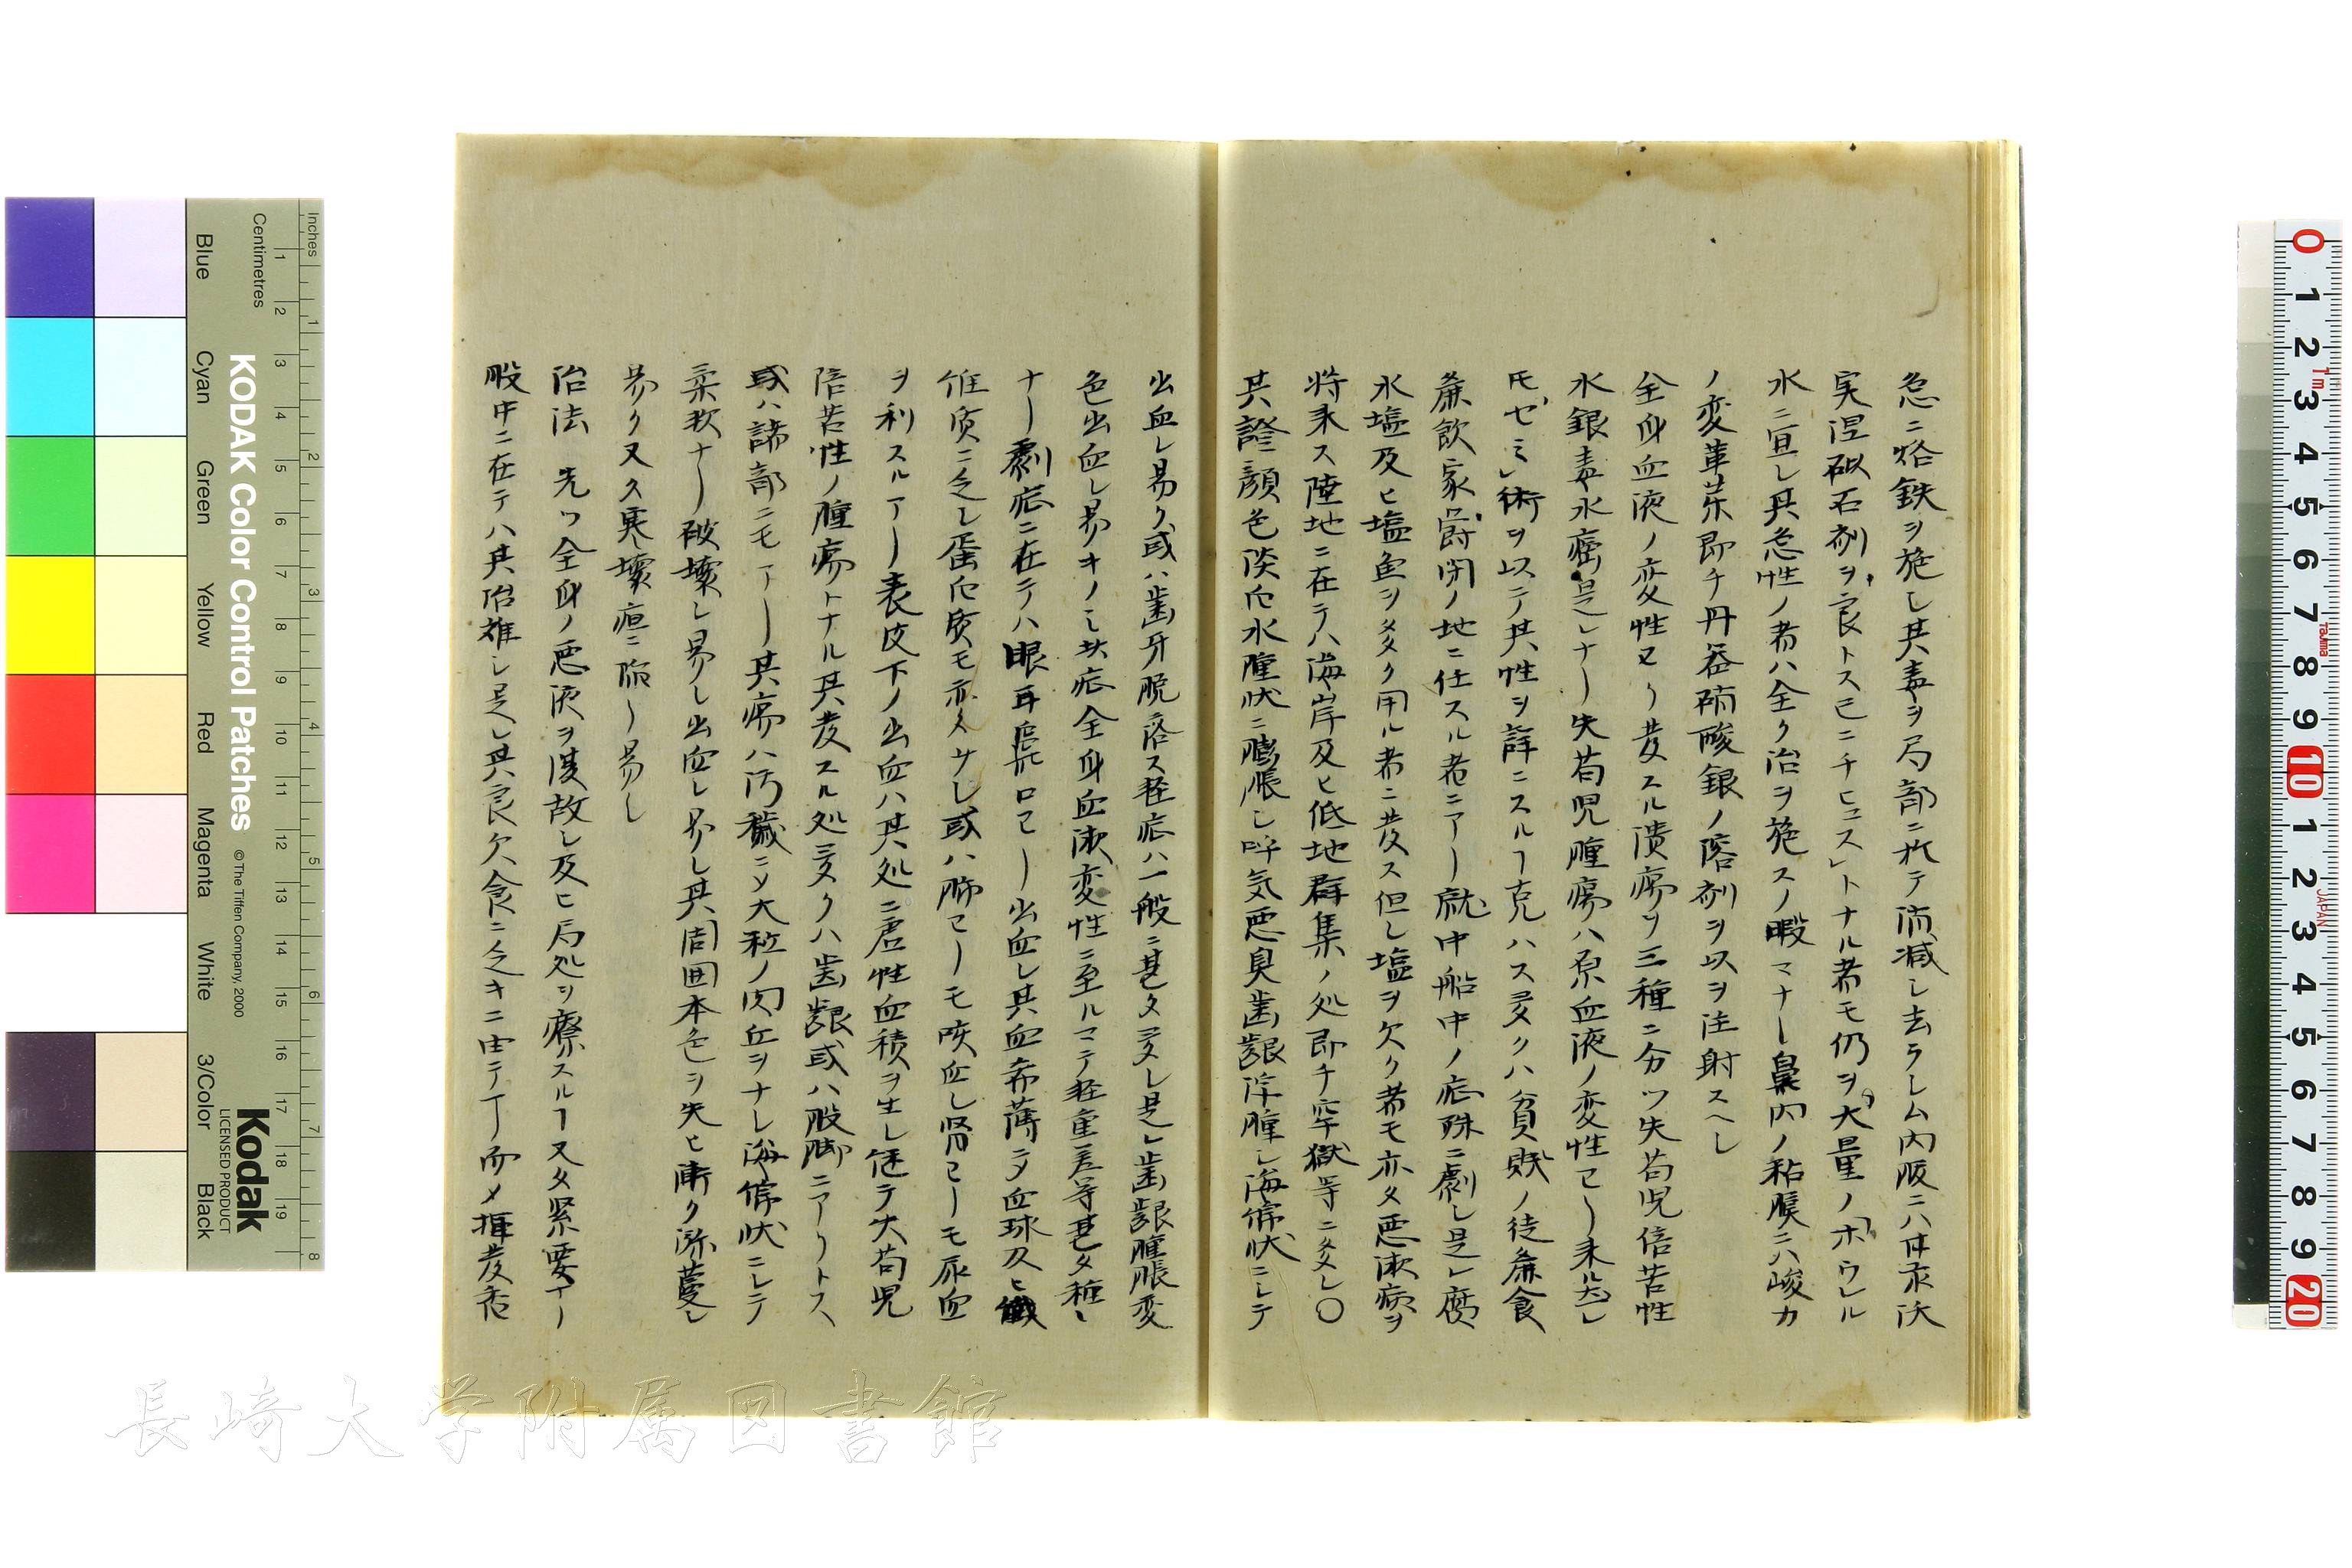 急ニ烙鉄ヲ施し其毒ヲ局部ニ於テ消滅し去ラしム内服ニハ甘汞沃
実涅砒石剤ヲ良トス已ニチヒュス」トナル者モ仍ヲ大量ノ「ホウレル
水ニ宜し其急性ノ者ハ全ク治ヲ施スノ暇マナー鼻内ノ粘膜ニハ峻力
ノ変革薬即チ丹礬硝酸銀ノ溶剤ヲ以ヲ注射スヘし
全身血液ノ変性ヨリ発スル潰瘍ヲ三種ニ分ツ失苟児倍苦性
水銀毒水癌是レナー失苟児腫瘍ハ原血液ノ変性ヨー来ル
モ「セミ」術ヲ以テ其性ヲ詳ニスルヿ克ハス多クハ貧賎ノ徒麁食
麁飲家欝閉ノ地ニ住スル者ニアー就中船中ノ症殊ニ劇し是レ腐
水塩及ヒ塩魚ヲ多ク用ル者ニ発ス但し塩ヲ欠ク者モ亦タ悪液病ヲ
将来ス陸地ニ在テハ海岸及ヒ低地群集ノ処即チ牢獄等ニ多し〇
其證顔色淡白水腫状ニ膨脹し呼気悪臭歯齦浮腫し海綿状ニしテ
出血し易ク或ハ歯牙脱落ス軽症ハ一般ニ甚タ多し是レ歯齦腫脹変
色出血し易キノミ此症全身血液変性ニ至ルマテ軽重差等甚タ種し
ナー劇症ニ在テハ眼耳鼻口ヨー出血し其血希薄ニメ血球及ヒ繊
維質ニ乏し蛋白質モ亦然サし或ハ肺ヨーモ咳血し腎ヨーモ尿血
ヲ利スルアー表皮下ノ出血ハ其処ニ虚性血積ヲ生し従テ失苟児
倍苦性ノ腫瘍トナル其発スル処多クハ歯齦或ハ股脚ニアリトス
或ハ諸部ニモアー其瘍ハ汚穢ニメ大粒ノ肉丘ヲナし海綿状ニしテ
柔軟ナー破壊し易し出血し易し其周囲本色ヲ失ヒ漸ク弥蔓し
易ク又久寒壊疽ニ陥ー易し
治法　先ツ全身ノ悪液ヲ復故し及ヒ局処ヲ療スルヿ又タ緊要ナー
般中ニ在テハ其治難し是レ其良欠食ニ乏キニ由テナー而メ揮発香
長崎大学附属図書館
KODAK Color Control Patches
©The Tiffen Company, 2000
Kodak
LICENSED PRODUCT
Inches
Centimetres
Blue
Cyan
Green
Yellow
Red
Magenta
White
3/Color
Black